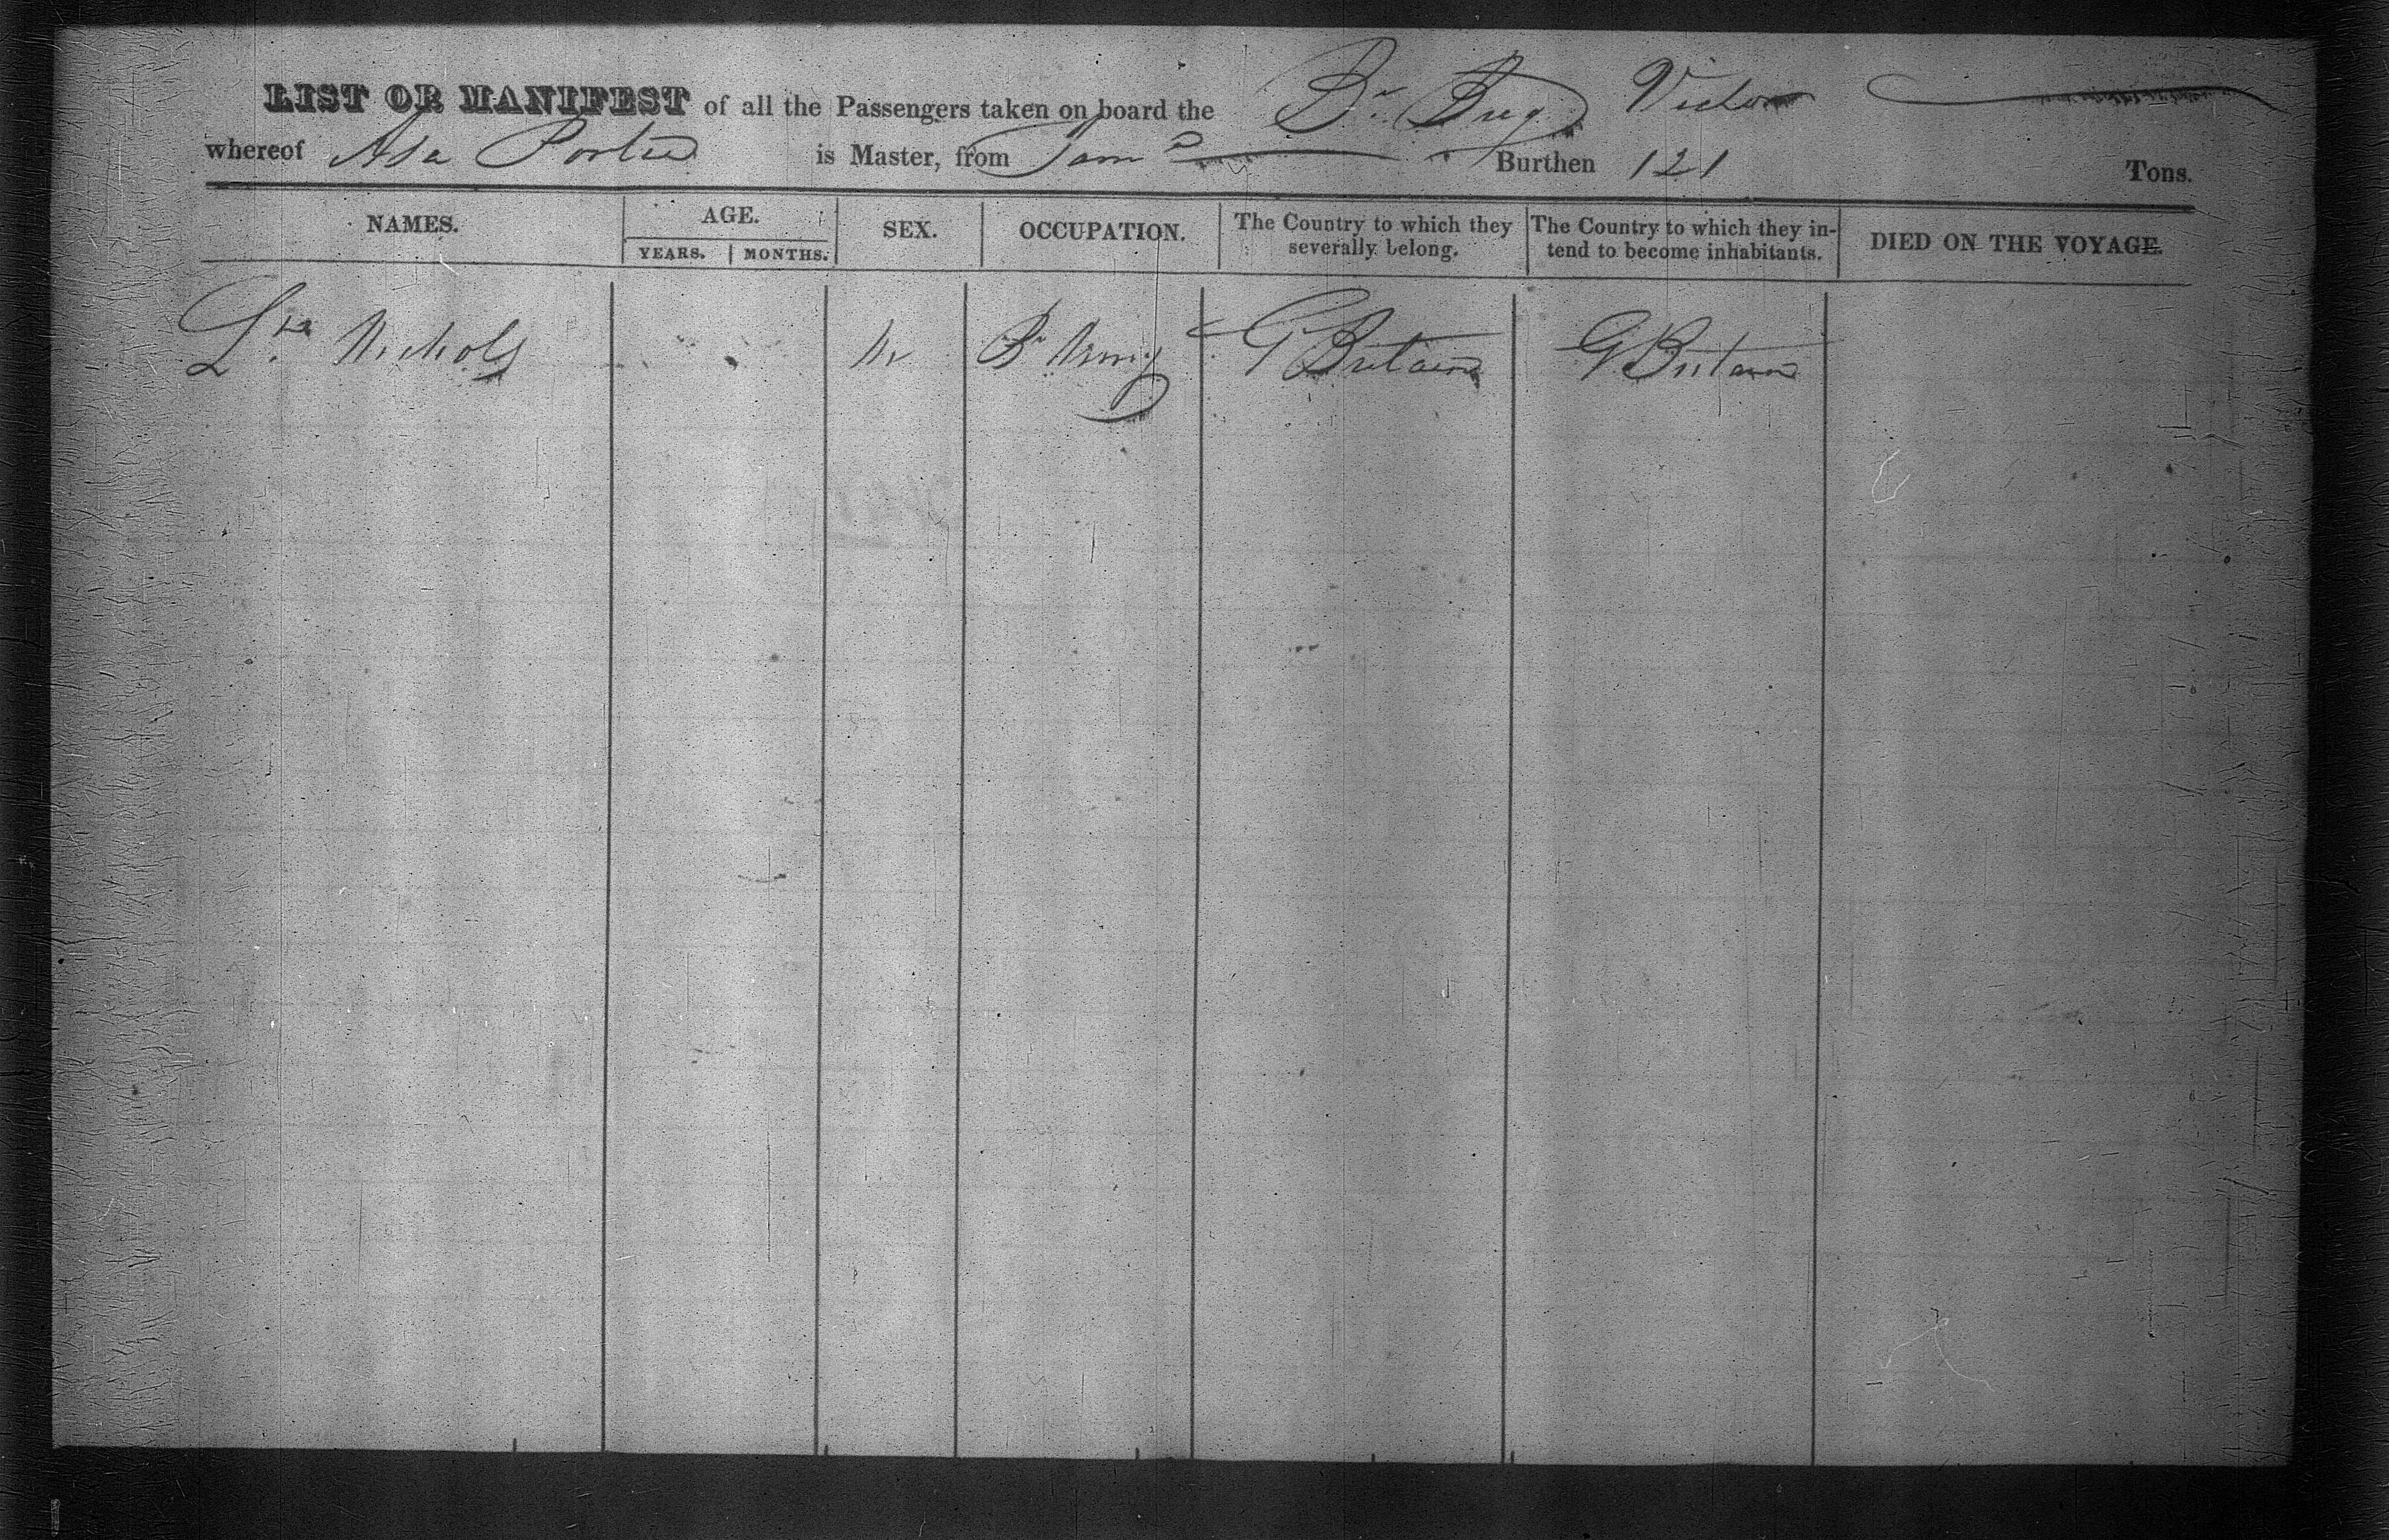 LIST OR MANIFEST of all the Passengers taken on board the Br. Brig Victor
whereof Asa Porter is Master, from Jam Burthen 121 Tons.
NAMES. AGE. SEX. OCCUPATION. The Country to which they severally belong. The Country to which they in-tend to become inhabitants. DIED ON THE VOYAGE.
YEARS. MONTHS.
Nichols Br Army G Britain G Britain